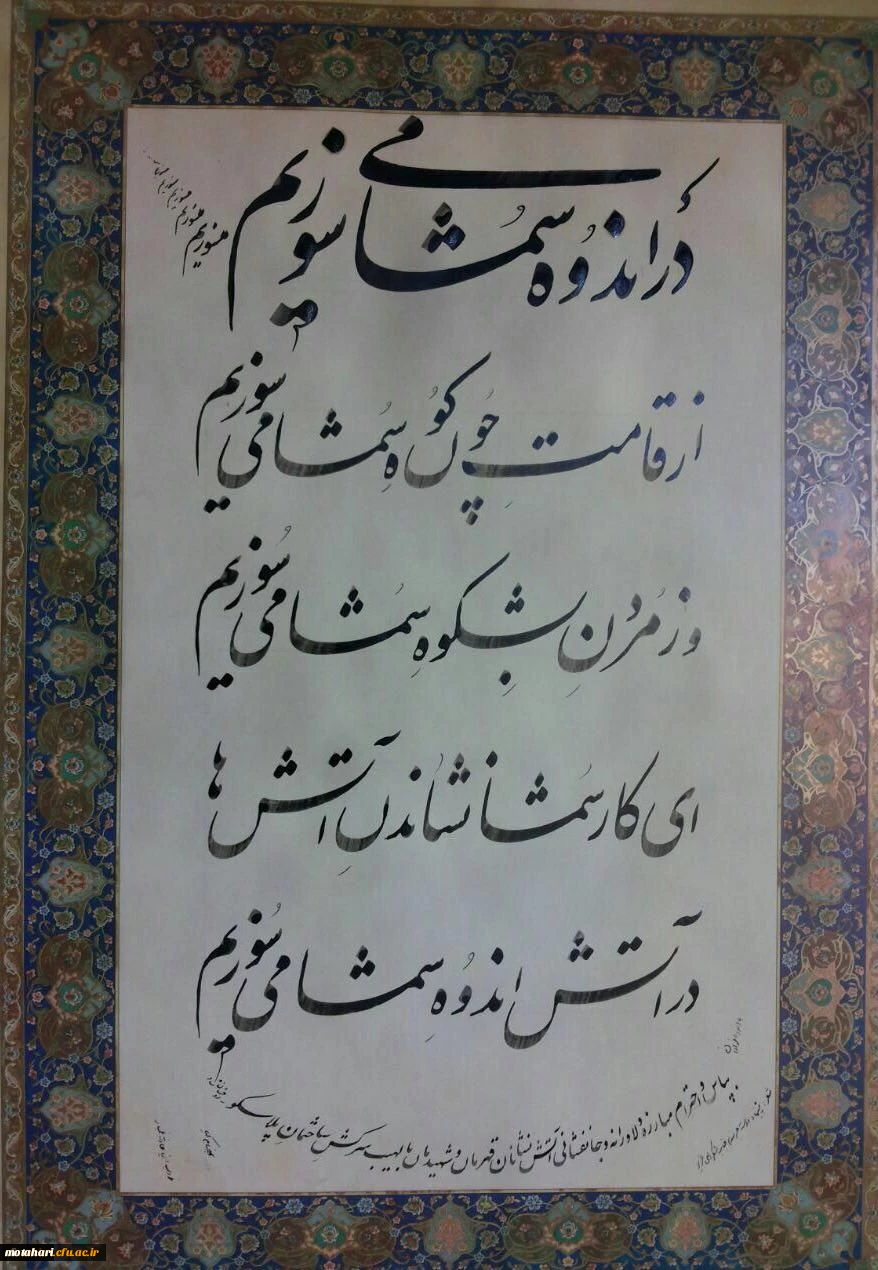 در اندوه شما می سوزیم
می سوزیم می سوزیم
از قامتِ چون کوهِ شما می سوزیم
وز مردنِ بشکوهِ شما می سوزیم
ای کار شما نشاندنِ آتش ها
در آتش اندوهِ شما می سوزیم
بپاس و احترام مبارزه دلاورانه و جانفشانی آتش نشانان قهرمان و شهیدمان با لهیب سرکش ساختمان پلاسکو
motahari.cfu.ac.ir